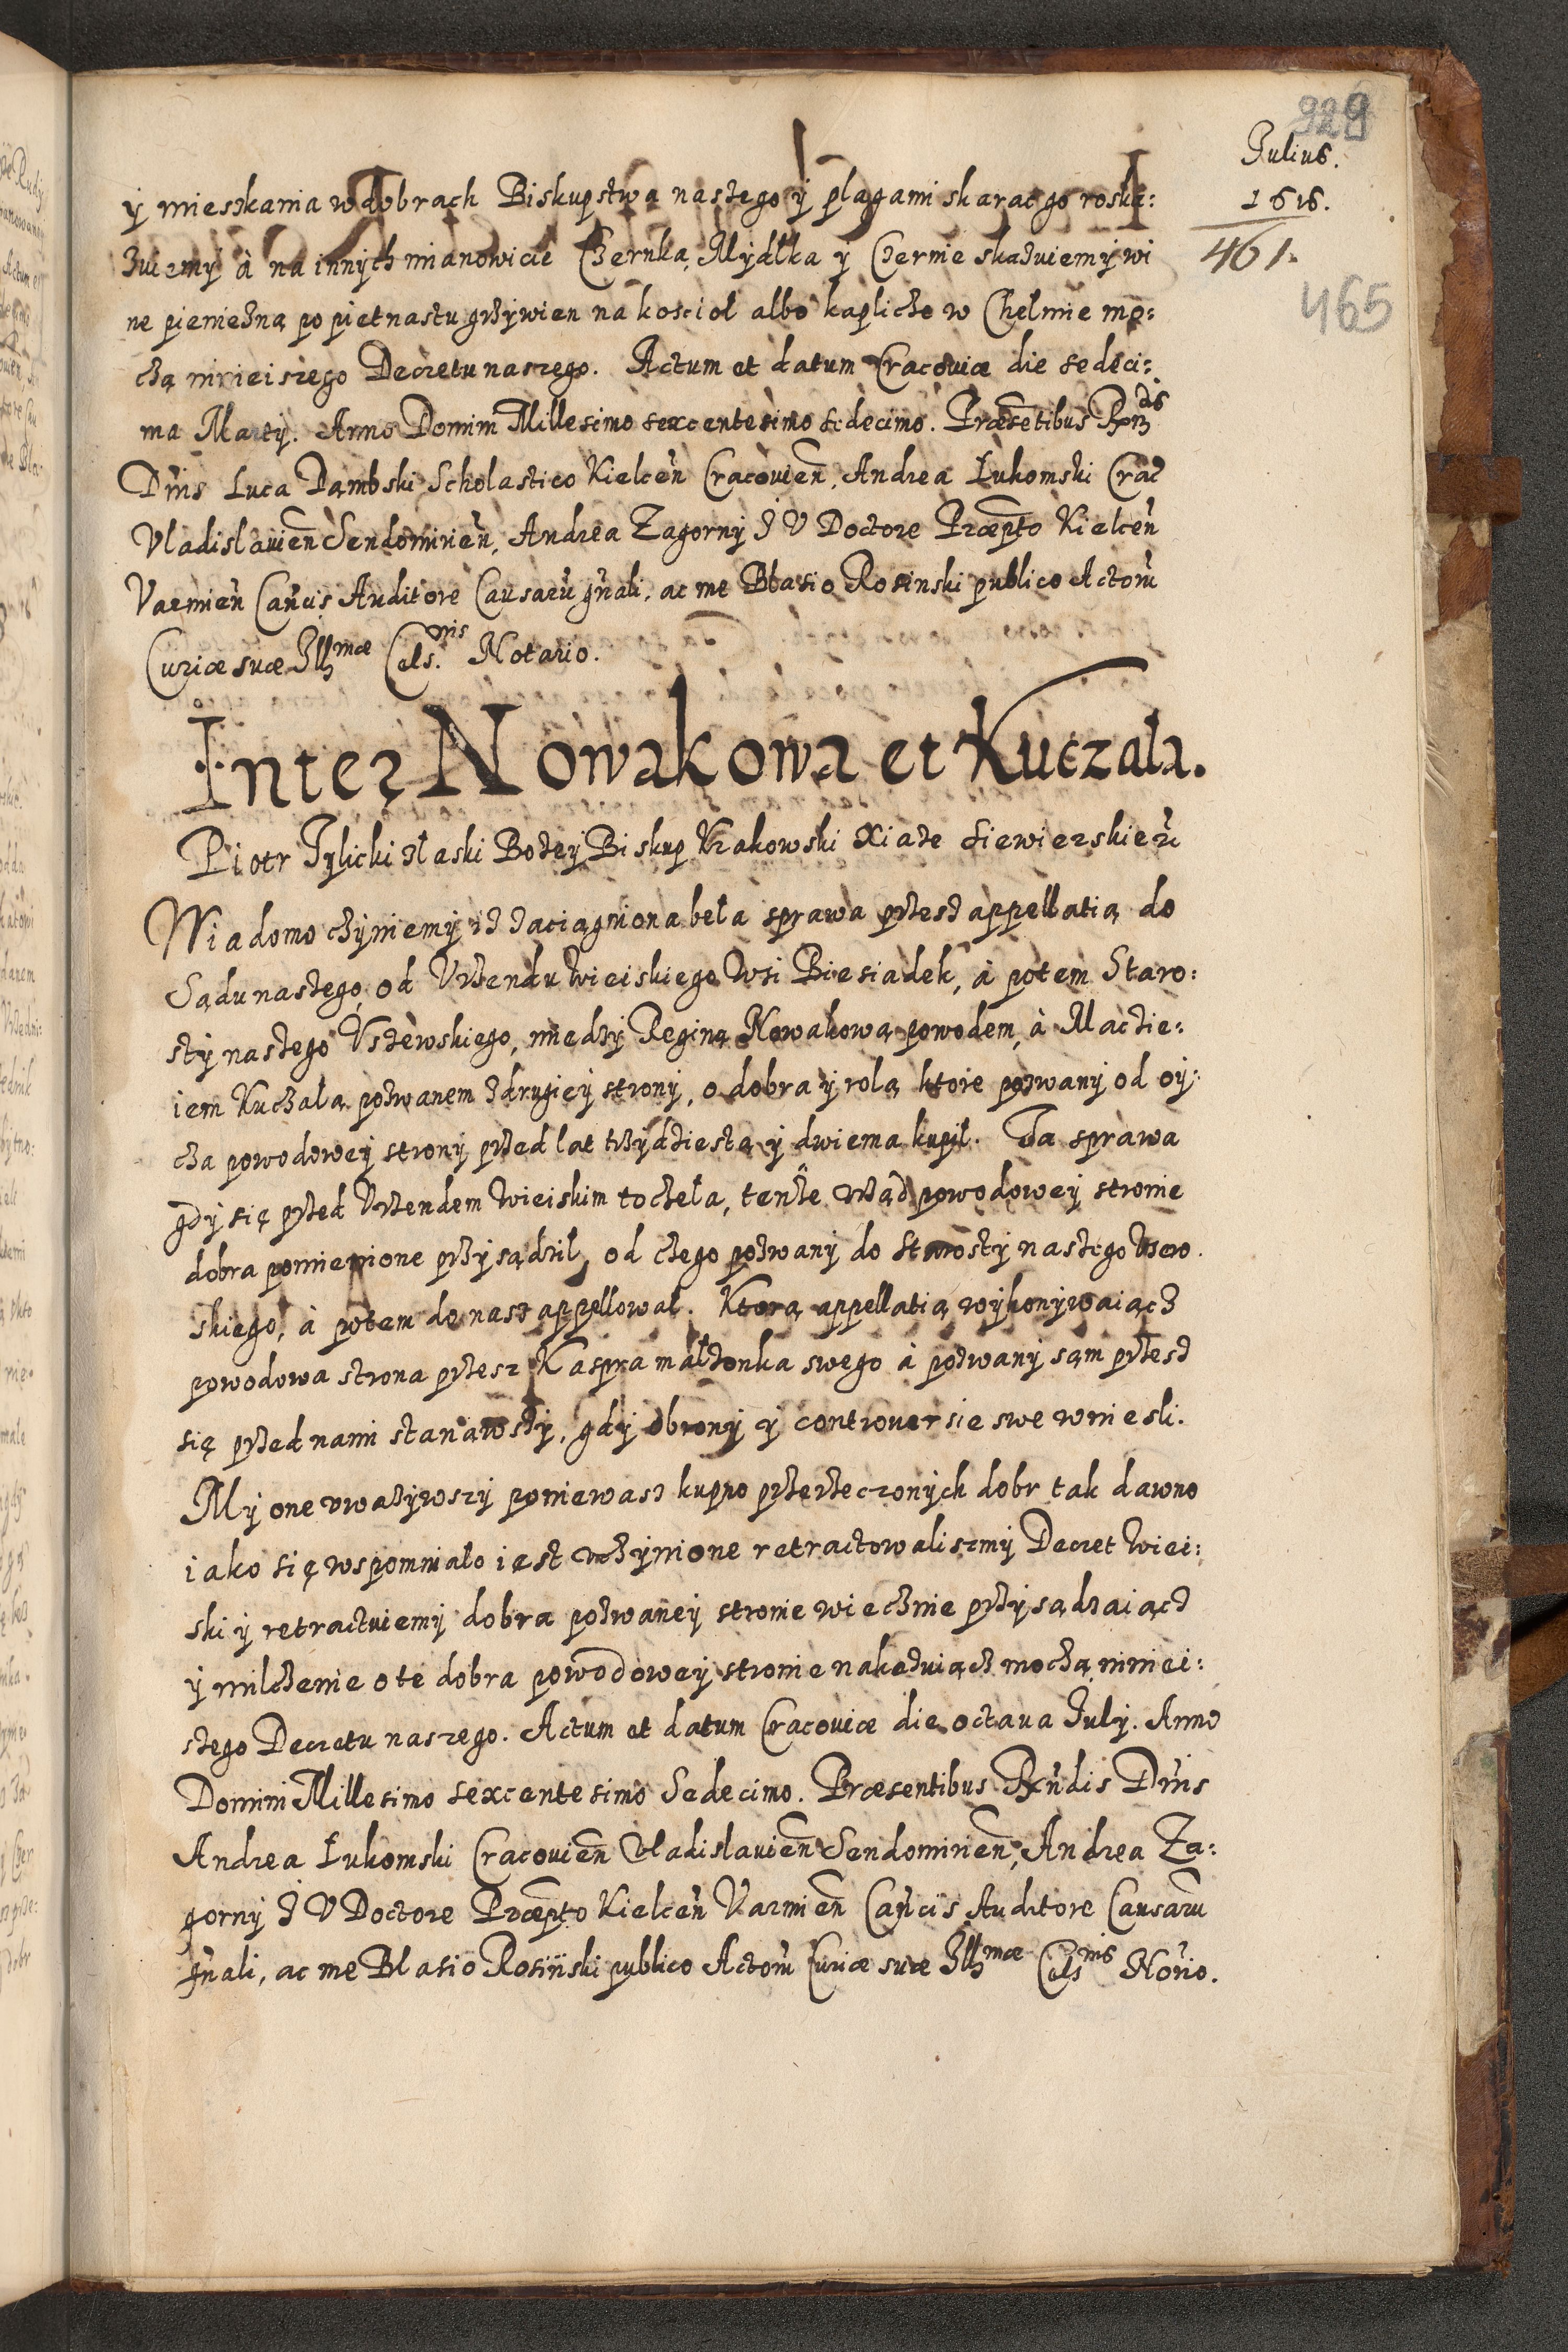 929
Julius.
1616.
461.
465
ÿ mieszkania w dobrach Biskupstwa naszego ÿ plagami skarac go roska:
zuiemÿ à na innÿch mianowicie Czernka, Mÿdlka ÿ Czernie skazuiemÿ wi
ne pieniezną po pietnastu grzÿwien na kosciol albo kapliczo w Chelmie mo:
czą ninieiszego Decretu naszego. Actum et datum Cracoviæ die sedeci:
ma Martÿ. Anno Domini Millesimo sexcentesimo sedecimo. Præsētibus
Dn̄is Luca Dąmbski Scholastico Kielcen̄ Cracovien̄, Andrea Łukomski Crac̄
Vladislavien̄ Sendomirien̄, Andrea Zagornÿ J V Doctore Præp̄to Kielcen̄
Varmien̄ Can̄cis Auditore Causarū gn̄ali, ac me Blasio Rosinski publico Actorū
Curiæ suæ Illmæ Cels.nis Notario.
Inter Nowakowa et Kuczala.
Piotr Tÿlicki z łaski Bożeÿ Biskup Krakowski Xiaże Siewierskie etc
Wiadomo czÿniemÿ iż zaciągniona beła sprawa przesz appellatią do
Sądu naszego, od Vrzendu wieiskiego Wsi Biesiadek, à potem Staro:
stÿ naszego Vszewskiego, miedzÿ Reginą Nowakową powodem, à Maczie:
iem Kuczałą pozwanem z drugieÿ stronÿ, o dobra ÿ rolą ktore pozwanÿ od oÿ:
cza powodoweÿ stronÿ przed lat trzÿdziestą ÿ dwiema kupił. Ta sprawa
gdÿ się przed Vrzendem Wieiskim toczeła, tenże vrząd powodoweÿ stronie
dobra pomienione przÿsądził, od czego pozwanÿ do Starostÿ naszego Vszew.
skiego, à potem do nasz appellował. Ktorą appellatią wÿkonÿwaiącz
powodowa strona przesz Kaspra małżonka swego à pozwanÿ sąm przesz
się przed nami stanąwszÿ, gdÿ obronÿ ÿ controuersie swe wniesli.
Mÿ one vważÿwszÿ poniewasz kupno przerzeczonÿch dobr tak dawno
iako się wspomniało iest vczÿnione retractowaliszmÿ Decret Wiei:
ski ÿ retractuiemÿ dobra pozwaneÿ stronie wiecznie przÿsądzaiącz
ÿ milczenie o te dobra powodoweÿ stronie nakazuiącz moczą niniei:
szego Decretu naszego. Actum et datum Cracoviæ die octaua Julÿ. Anno
Domini Millesimo sexcentesimo Sedecimo. Præsentibus Rn̄dis Dn̄is
Andrea Łukomski Cracouien̄ Vladislauien̄ Sendomirien̄, Andrea Za:
gornÿ J V Doctore Præp̄to Kielcen̄ Varmien̄ Can̄cis Auditore Causarū
gn̄ali, ac me Blasio Rosinski publico Actorū Curiæ suæ Illmæ Celsnis Nōrio.